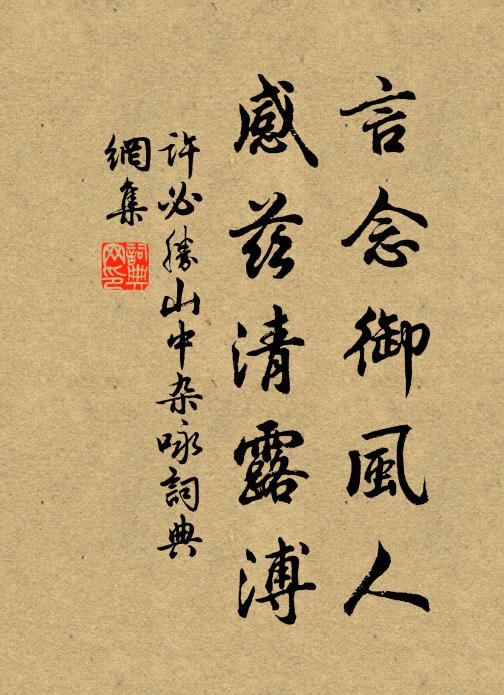 言念御風人
感兹清露漙
许必勝山中杂咏詞典
網集
詞典
网印